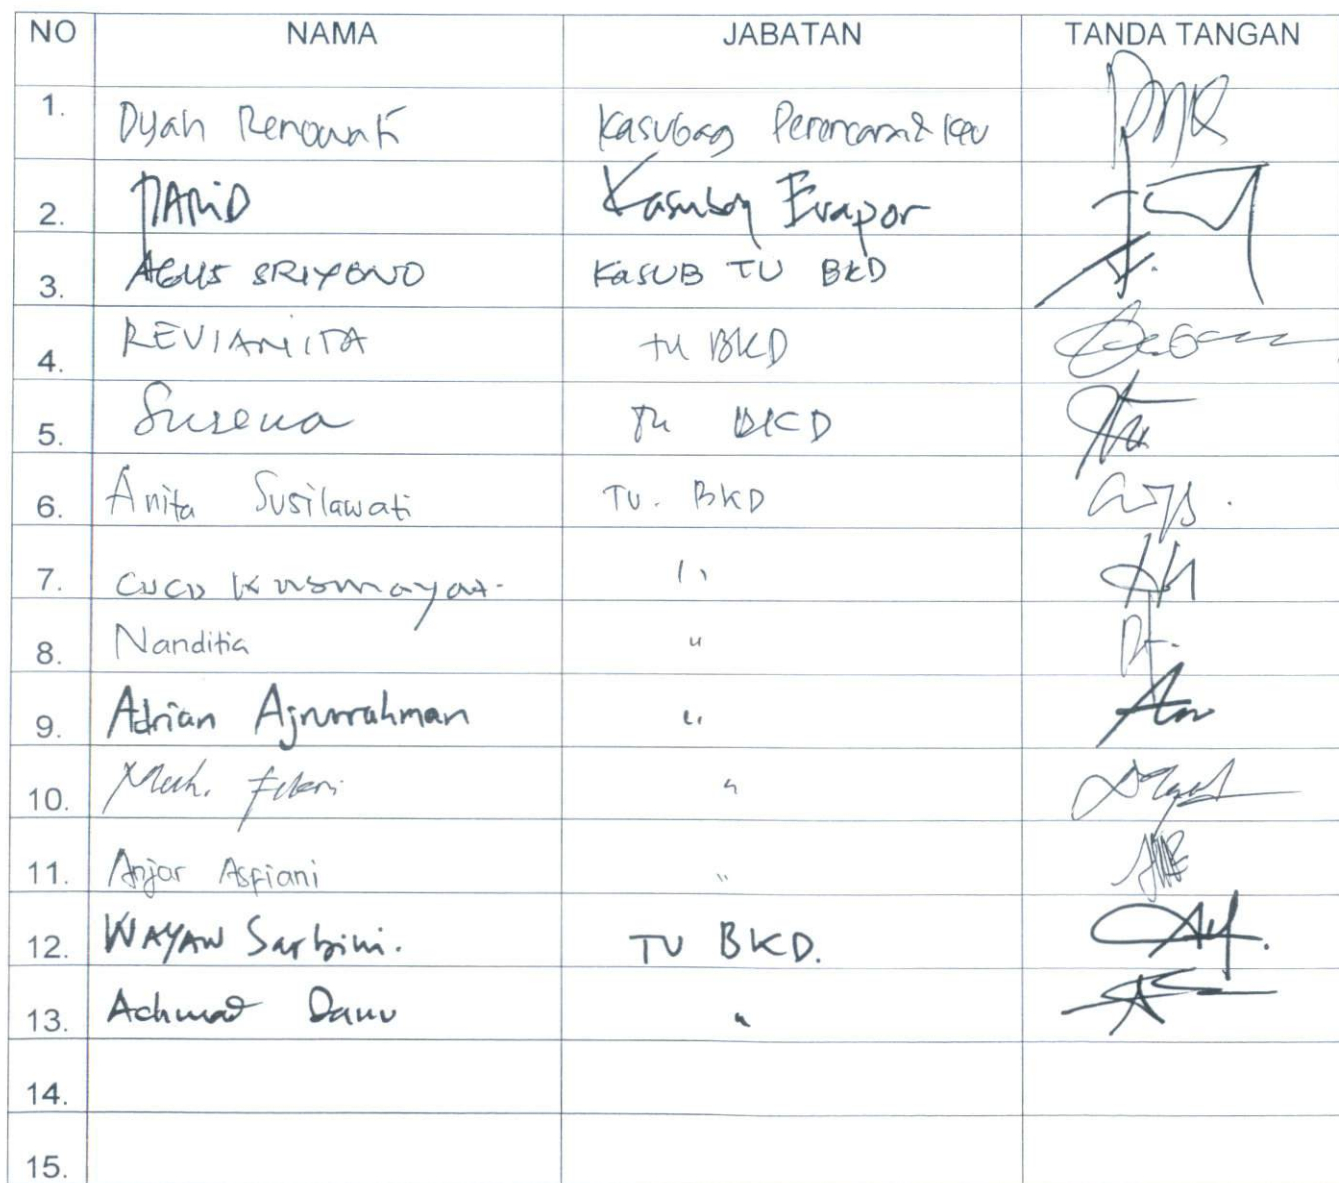 NO NAMA JABATAN TANDA TANGAN
1. Dyah Renowati Kasubag
2. Kasubag Evapor
3. AGUS SRIYONO KASUB TU BKD
4. REVIANITA TU BKD
5. TU BKD
6. Anita Susilawati TU. BKD
7. CUCU "
8. Nanditia "
9. Adrian "
10. Muh. "
11. Anjar Aspiani "
12. WAYAN Sarbini. TU BKD.
13. Achmad Danu "
14.
15.